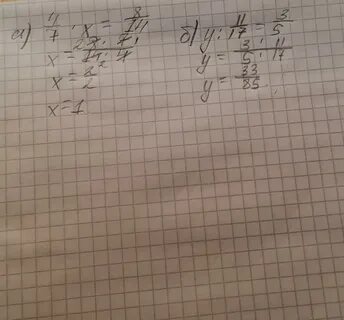 а) 4/7 · x = 8/14
x = 8/14 : 4/7
x = 2/2
x = 1
б) y : 11/17 = 3/5
y = 3/5 · 11/17
y = 33/85